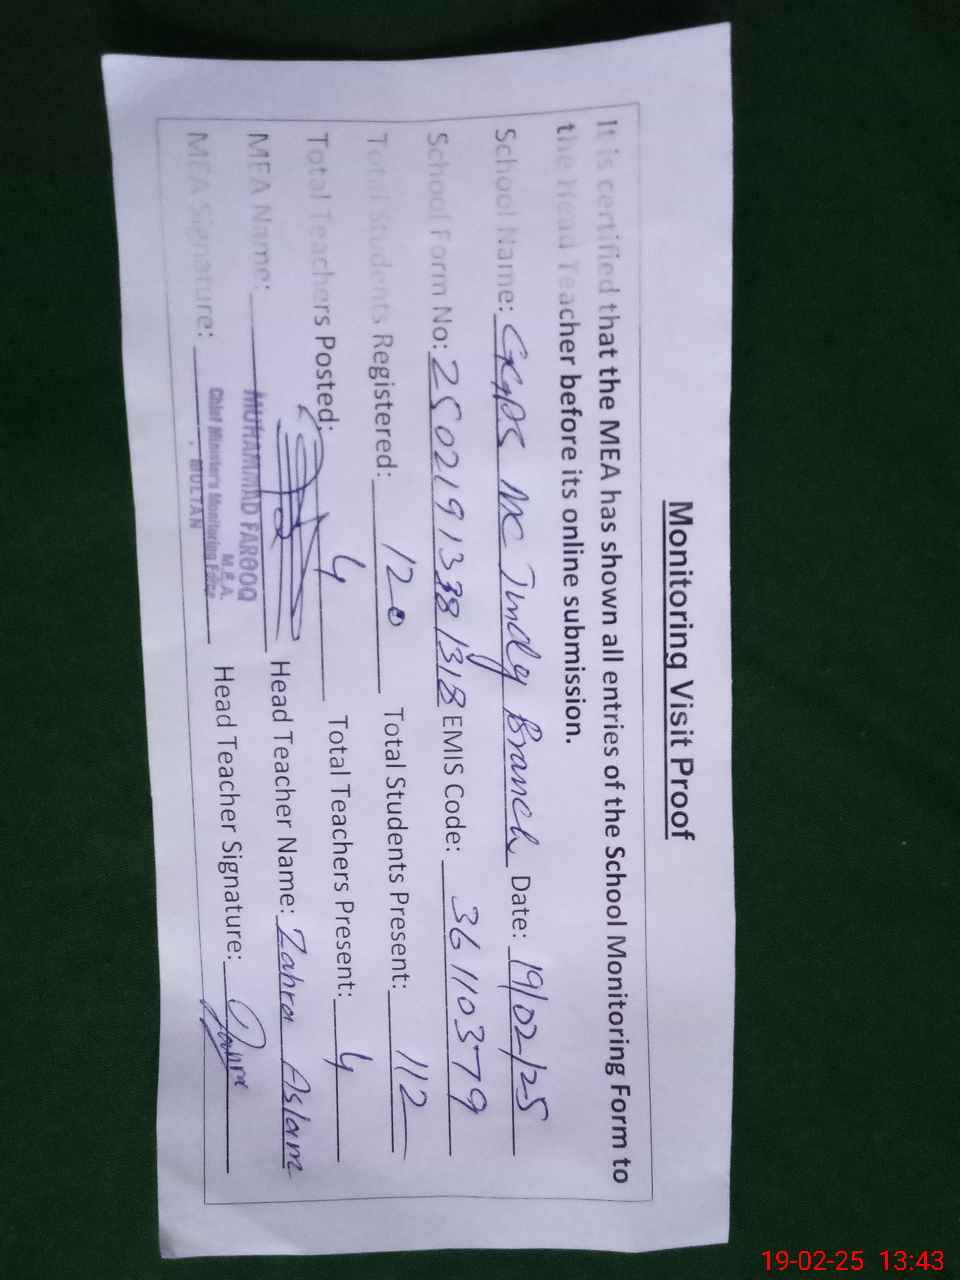 Monitoring Visit Proof
It is certified that the MEA has shown all entries of the School Monitoring Form to
the Head Teacher before its online submission.
School Name: GGPS MC Tindy Branch Date: 19/02/25
School Form No: 25021913381318 EMIS Code: 36110379
Total Students Registered: 120 Total Students Present: 112
Total Teachers Posted: 4 Total Teachers Present: 4
MEA Name: MUHAMMAD FAROOQ Head Teacher Name: Zahra Aslam
M.E.A.
Chief Minister's Monitoring Force
MULTAN
MEA Signature: Head Teacher Signature: Zahra
19-02-25 13:43